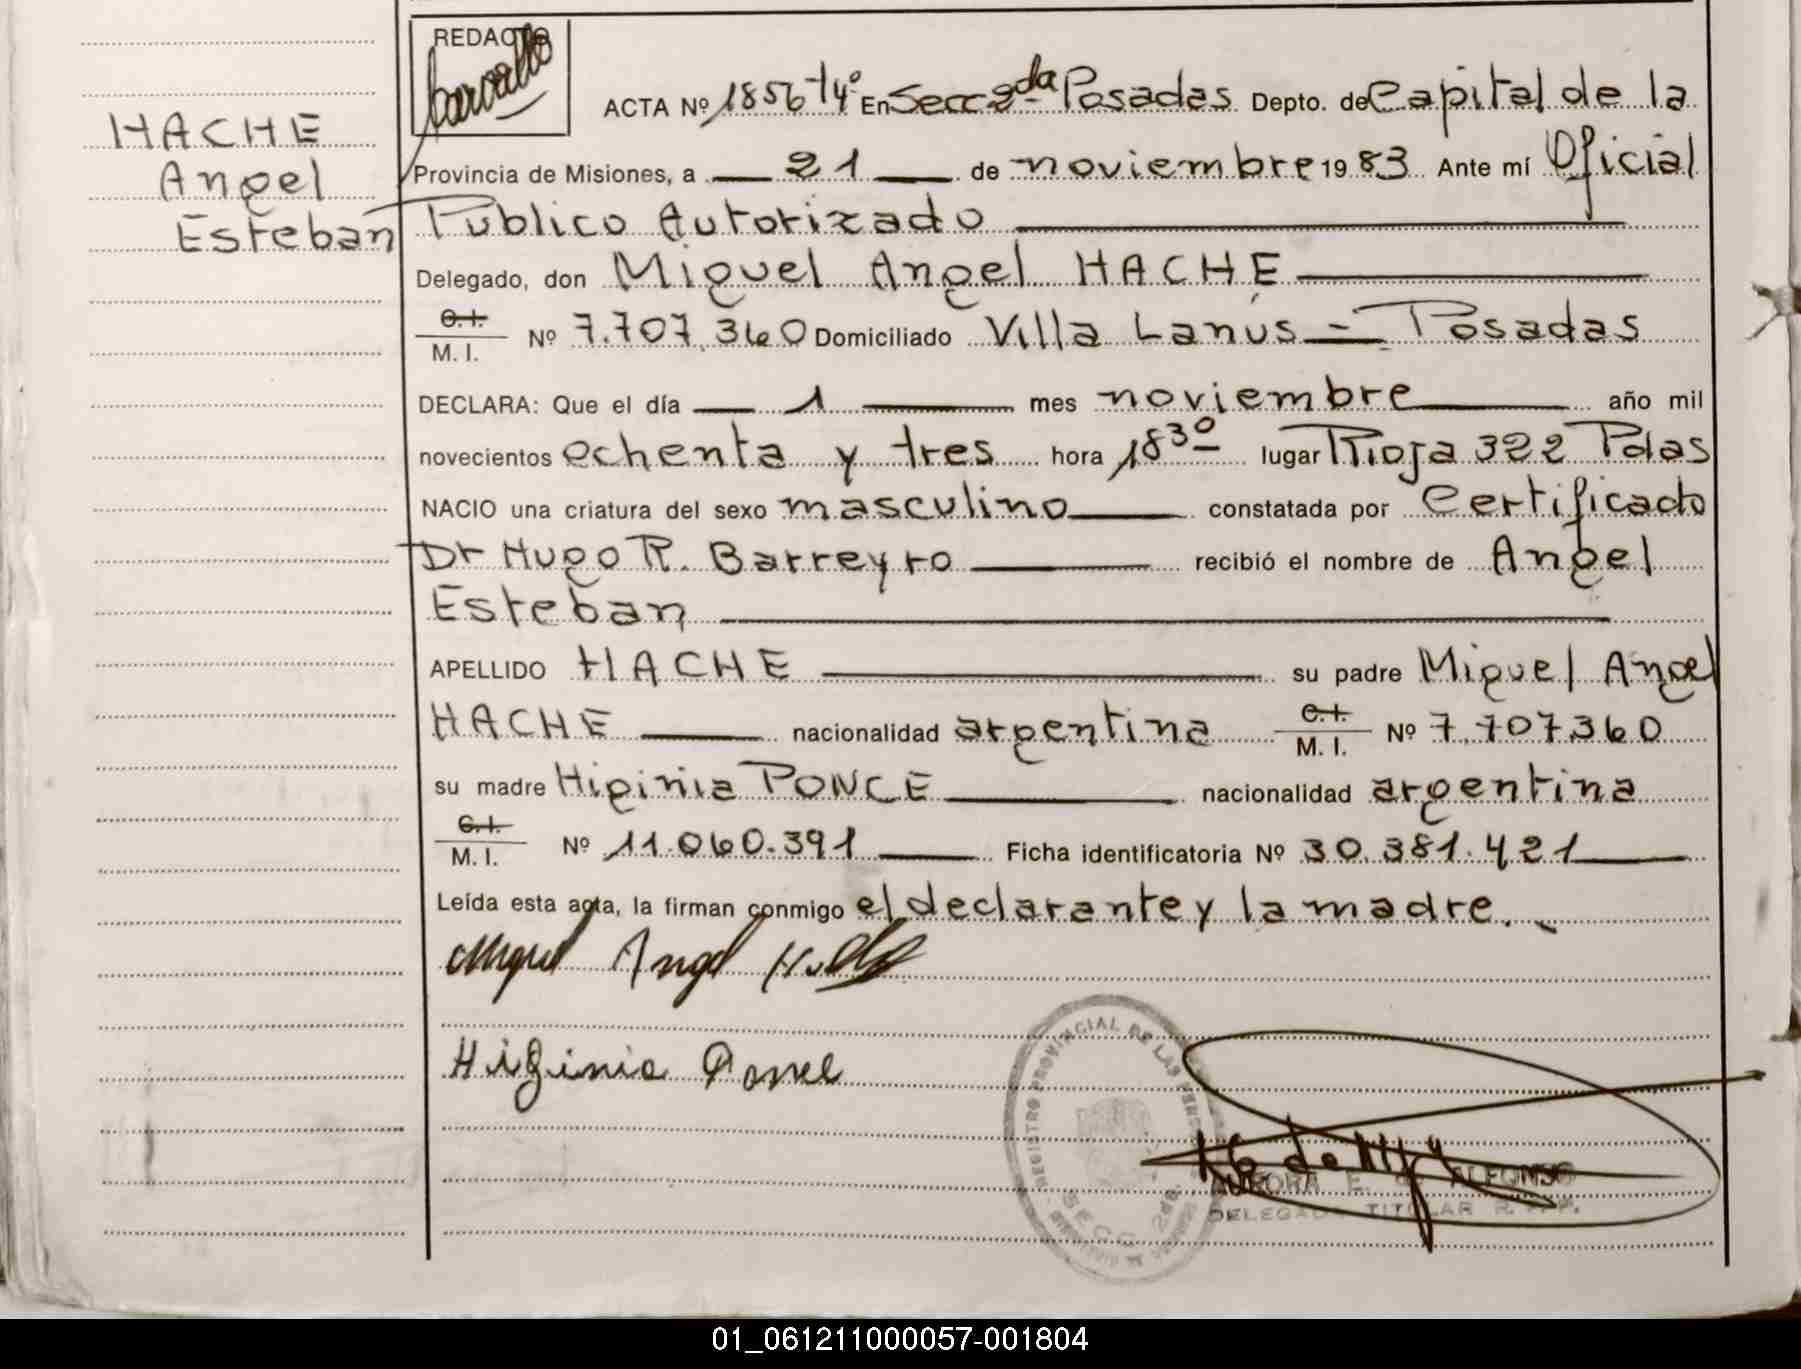 HACHE
Angel
Esteban
REDACTO
Carvallo
ACTA Nº 1856 T4º En Secc 2da Posadas Depto. de Capital de la
Provincia de Misiones, a 21 de noviembre 1983 Ante mí Oficial
Público Autorizado
Delegado, don Miguel Angel HACHE
C.I. M. I. Nº 7.707.360 Domiciliado Villa Lanús = Posadas
DECLARA: Que el día 1 mes noviembre año mil
novecientos ochenta y tres hora 18 30 lugar Rioja 322 Pdas
NACIO una criatura del sexo masculino constatada por Certificado
Dr Hugo R. Barreyro recibió el nombre de Angel
Esteban
APELLIDO HACHE su padre Miguel Angel
HACHE nacionalidad argentina C.I. M. I. Nº 7.707.360
su madre Higinia PONCE nacionalidad argentina
C.I. M. I. Nº 11.060.391 Ficha identificatoria Nº 30.381.421
Leída esta acta, la firman conmigo el declarante y la madre.
Miguel Angel Hache
Higinia Ponce
REGISTRO PROVINCIAL DE LAS PERSONAS
SECC. 2da.
E. de ALFONSO
DELEGADA TITULAR R.P.P.
01_061211000057-001804